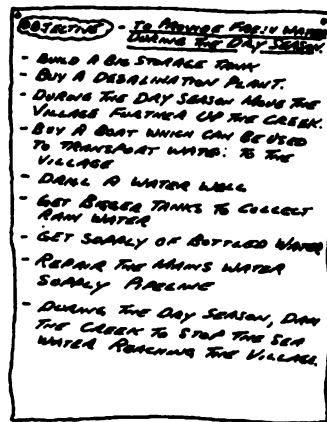 OBJECTIVE - TO PROVIDE FRESH WATER
DURING THE DRY SEASON.
- BUILD A BIG STORAGE TANK
- BUY A DESALINATION PLANT.
- DURING THE DRY SEASON MOVE THE
VILLAGE FURTHER UP THE CREEK.
- BUY A BOAT WHICH CAN BE USED
TO TRANSPORT WATER TO THE
VILLAGE
- DRILL A WATER WELL
- GET BIGGER TANKS TO COLLECT
RAIN WATER
- GET SUPPLY OF BOTTLED WATER
- REPAIR THE MAINS WATER
SUPPLY PIPELINE
- DURING THE DRY SEASON, DAM
THE CREEK TO STOP THE SEA
WATER REACHING THE VILLAGE.